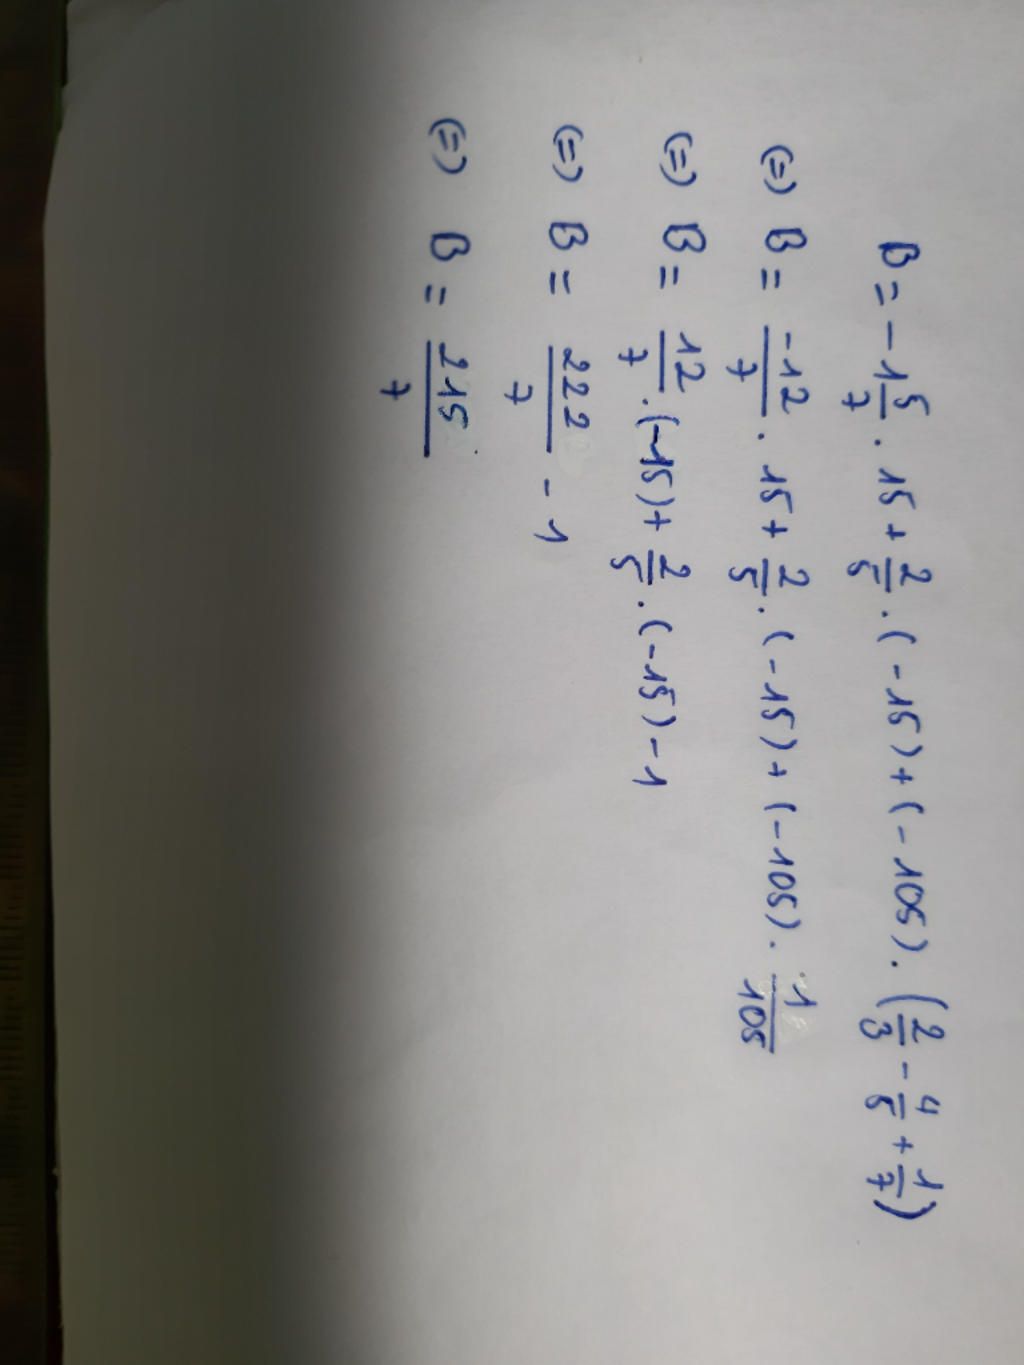 B = -1 5/7 . 15 + 2/5 . (-15) + (-105) . (2/3 - 4/5 + 1/7)
(=) B = -12/7 . 15 + 2/5 . (-15) + (-105) . 1/105
(=) B = 12/7 . (-15) + 2/5 . (-15) - 1
(=) B = 222/7 - 1
(=) B = 215/7